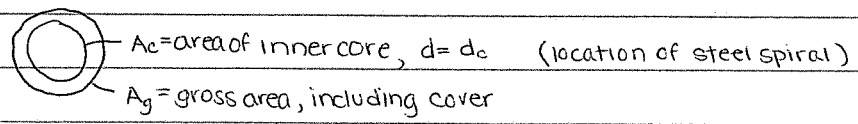 Ac=area of inner core, d=dc (location of steel spiral)
Ag=gross area, including cover